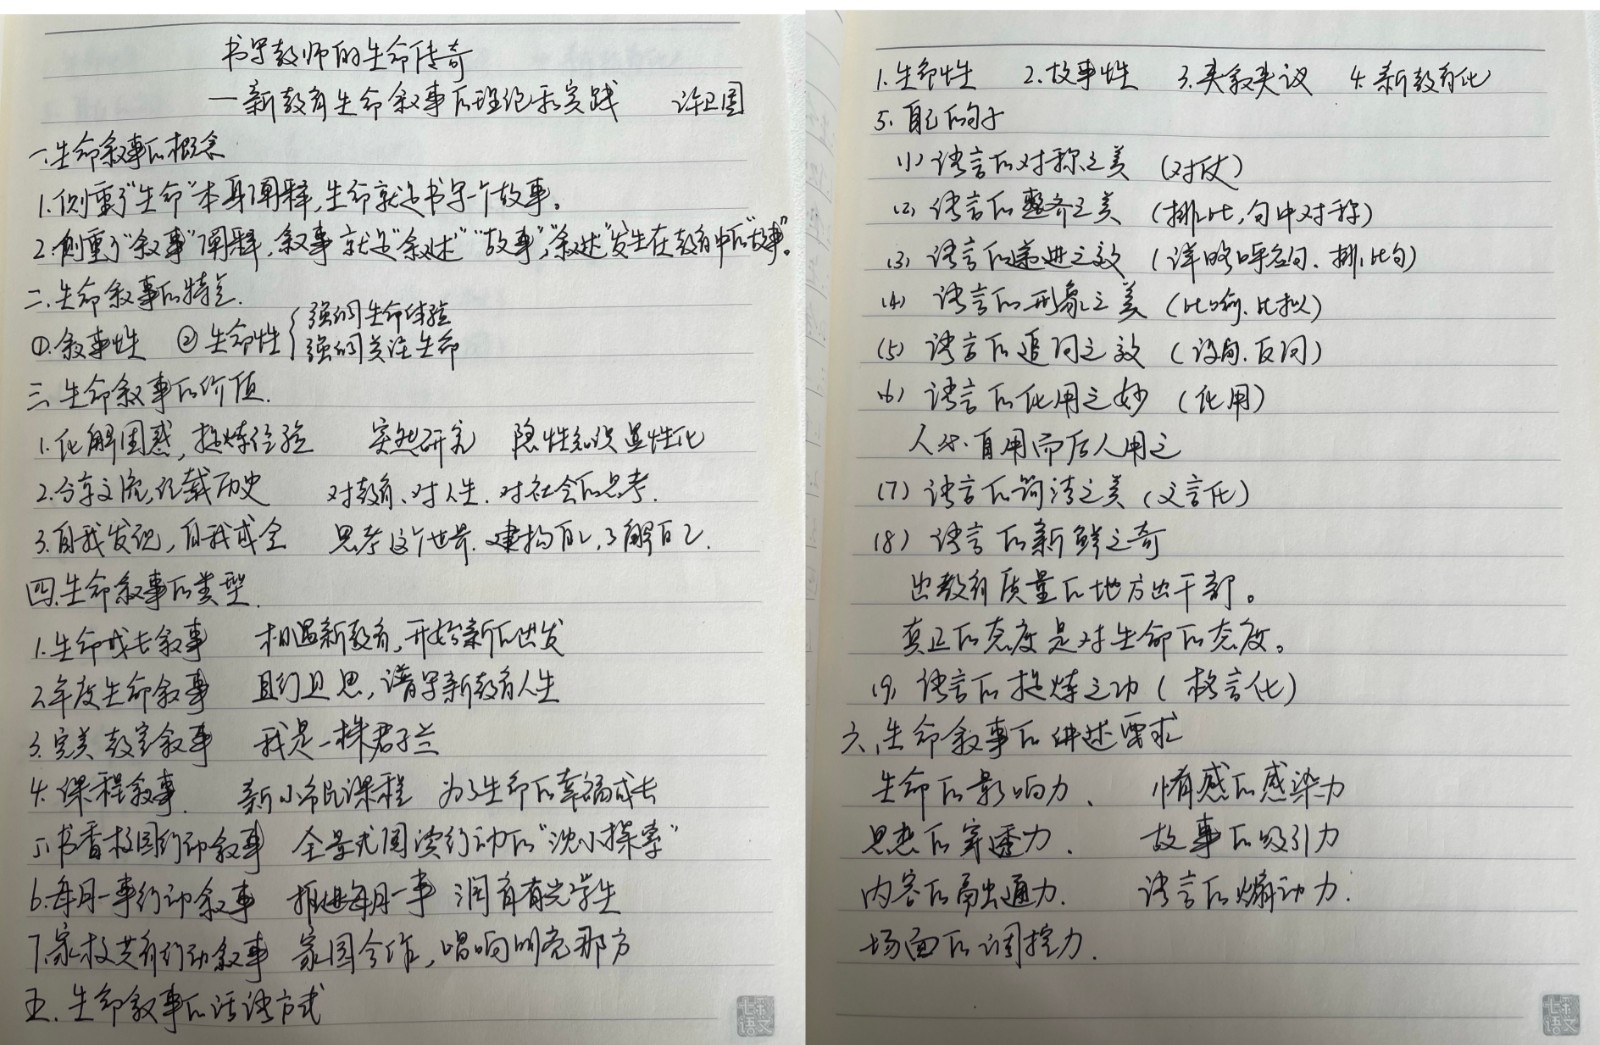 书写教师的生命传奇
—新教育生命叙事的理论和实践 许卫国
一.生命叙事的概念
1.侧重了“生命”本身阐释,生命就是书写一个故事。
2.侧重了“叙事”阐释,叙事就是“叙述”“故事”,“叙述”发生在教育中的“故事”。
二.生命叙事的特点.
①.叙事性 ②生命性 { 强调生命体验
强调关注生命
三.生命叙事的价值.
1.化解困惑,提炼经验 实然研究 隐性知识显性化
2.分享交流,记载历史 对教育、对人生.对社会的思考.
3.自我发现,自我成全 思考这个世界.建构自己,了解自己.
四.生命叙事的类型.
1.生命成长叙事 相遇新教育,开始新的出发
2.年度生命叙事 且行且思,谱写新教育人生
3.完美教室叙事 我是一株君子兰
4.课程叙事. 新小市民课程 为了生命的幸福成长
5.书香校园行动叙事 全景式阅读行动的“沈小探索”
6.每月一事行动叙事 推进每月一事 润育有光学生
7.家校共育行动叙事 家园合作,唱响明亮那方
五.生命叙事的话语方式
1.生命性 2.故事性 3.夹叙夹议 4.新教育化
5.自己的句子
(1)语言的对称之美(对仗)
(2)语言的整齐之美(排比,句中对称)
(3)语言的递进之效(详略呼名句、排比句)
(4)语言的形象之美(比喻.比拟)
(5)语言的追问之效(设问.反问)
(6)语言的化用之妙(化用)
人不自用而后人用之
(7)语言的简洁之美(文言化)
(8)语言的新鲜之奇
出教育质量的地方出干部。
真正的态度是对生命的态度。
(9)语言的提炼之功(格言化)
六.生命叙事的讲述要求
生命的影响力、 情感的感染力
思想的穿透力. 故事的吸引力
内容的融通力. 语言的煽动力.
场面的调控力.
七彩语文
七彩语文